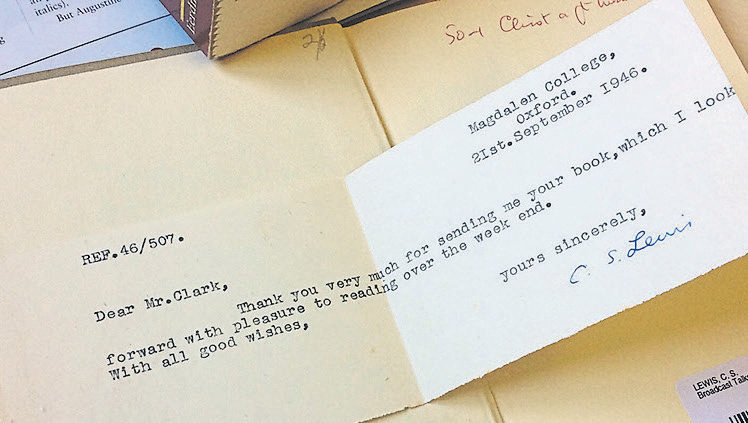 italics).
But Augustine
Magdalen College,
Oxford.
21st.September 1946.
REF.46/507.
Dear Mr.Clark,
Thank you very much for sending me your book,which I look
forward with pleasure to reading over the week end.
With all good wishes,
yours sincerely,
C. S. Lewis
LEWIS, C. S.
Broadcast Talks